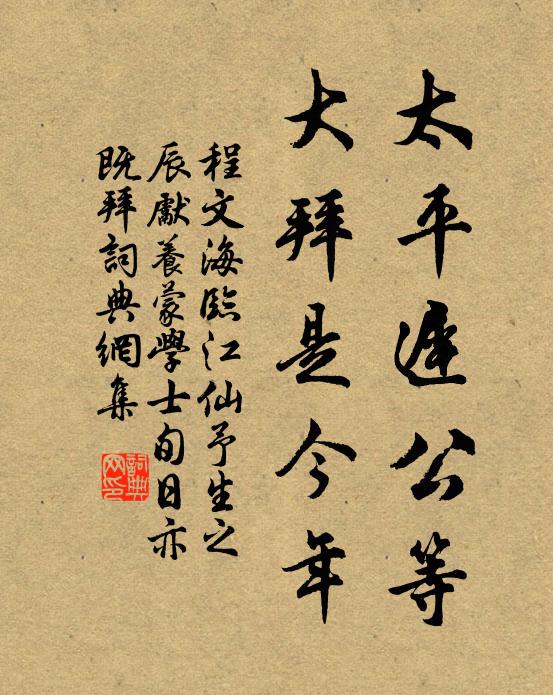 太平遲公等
大拜是今年
程文海臨江仙予生之
辰獻養蒙學士旬日亦
既拜詞典網集
詞典網印